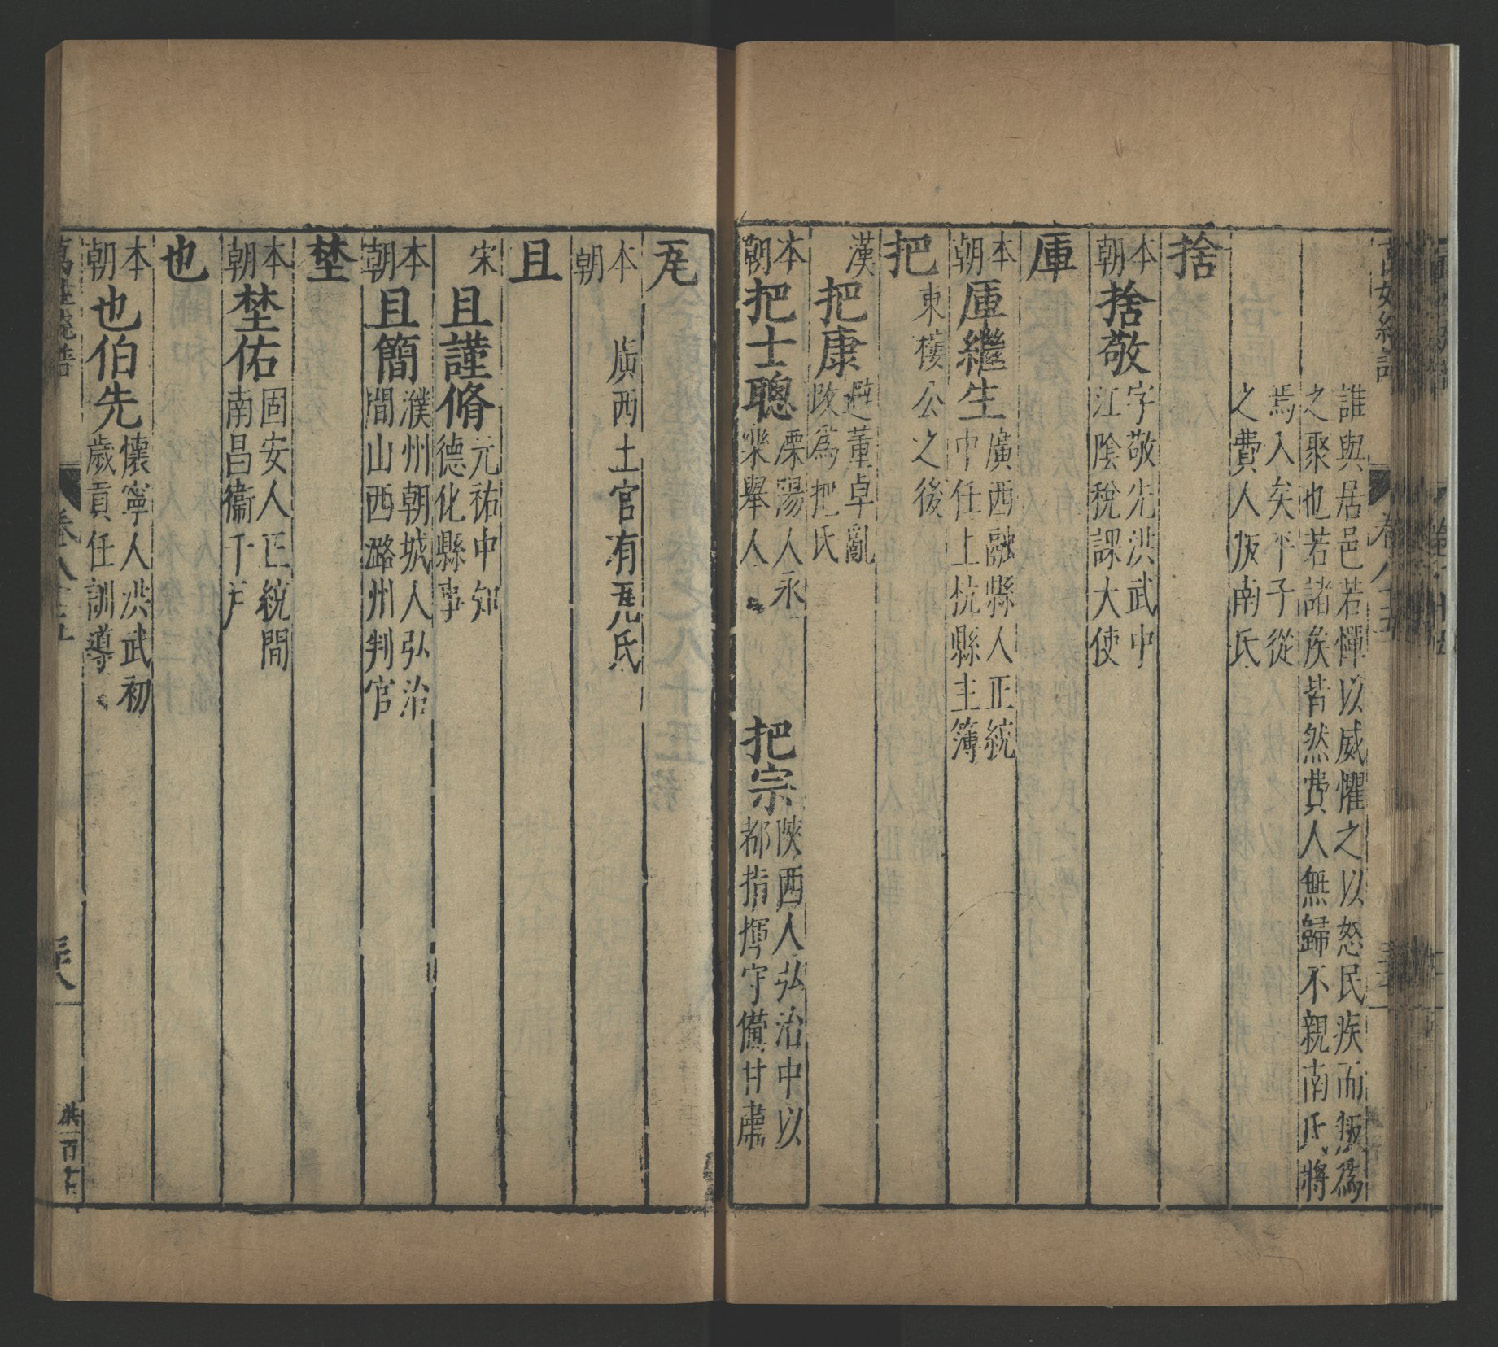 誰與居邑若憚以威懼之以怒民疾而叛爲
之聚也若諸族皆然費人無歸不親南氏將
焉入矣平子從
之費人叛南氏
捨
本朝
捨敬
字敬先洪武中
江陰稅課大使
厙
本朝
厙繼生
廣西融縣人正統
中任上杭縣主簿
把
東樓公之後
漢
把康
避董卓亂
改爲把氏
本朝
把士聰
溧陽人永
樂舉人
把宗
陝西人弘治中以
都指揮守備甘肅
本朝
廣西土官有
氏
且
宋
且謹脩
元祐中知
德化縣事
本朝
且簡
濮州朝城人弘治
間山西潞州判官
埜
本朝
埜佑
固安人正統間
南昌衞千户
也
本朝
也伯先
懷寧人洪武初
歲貢任訓導
萬姓統譜
卷八十五